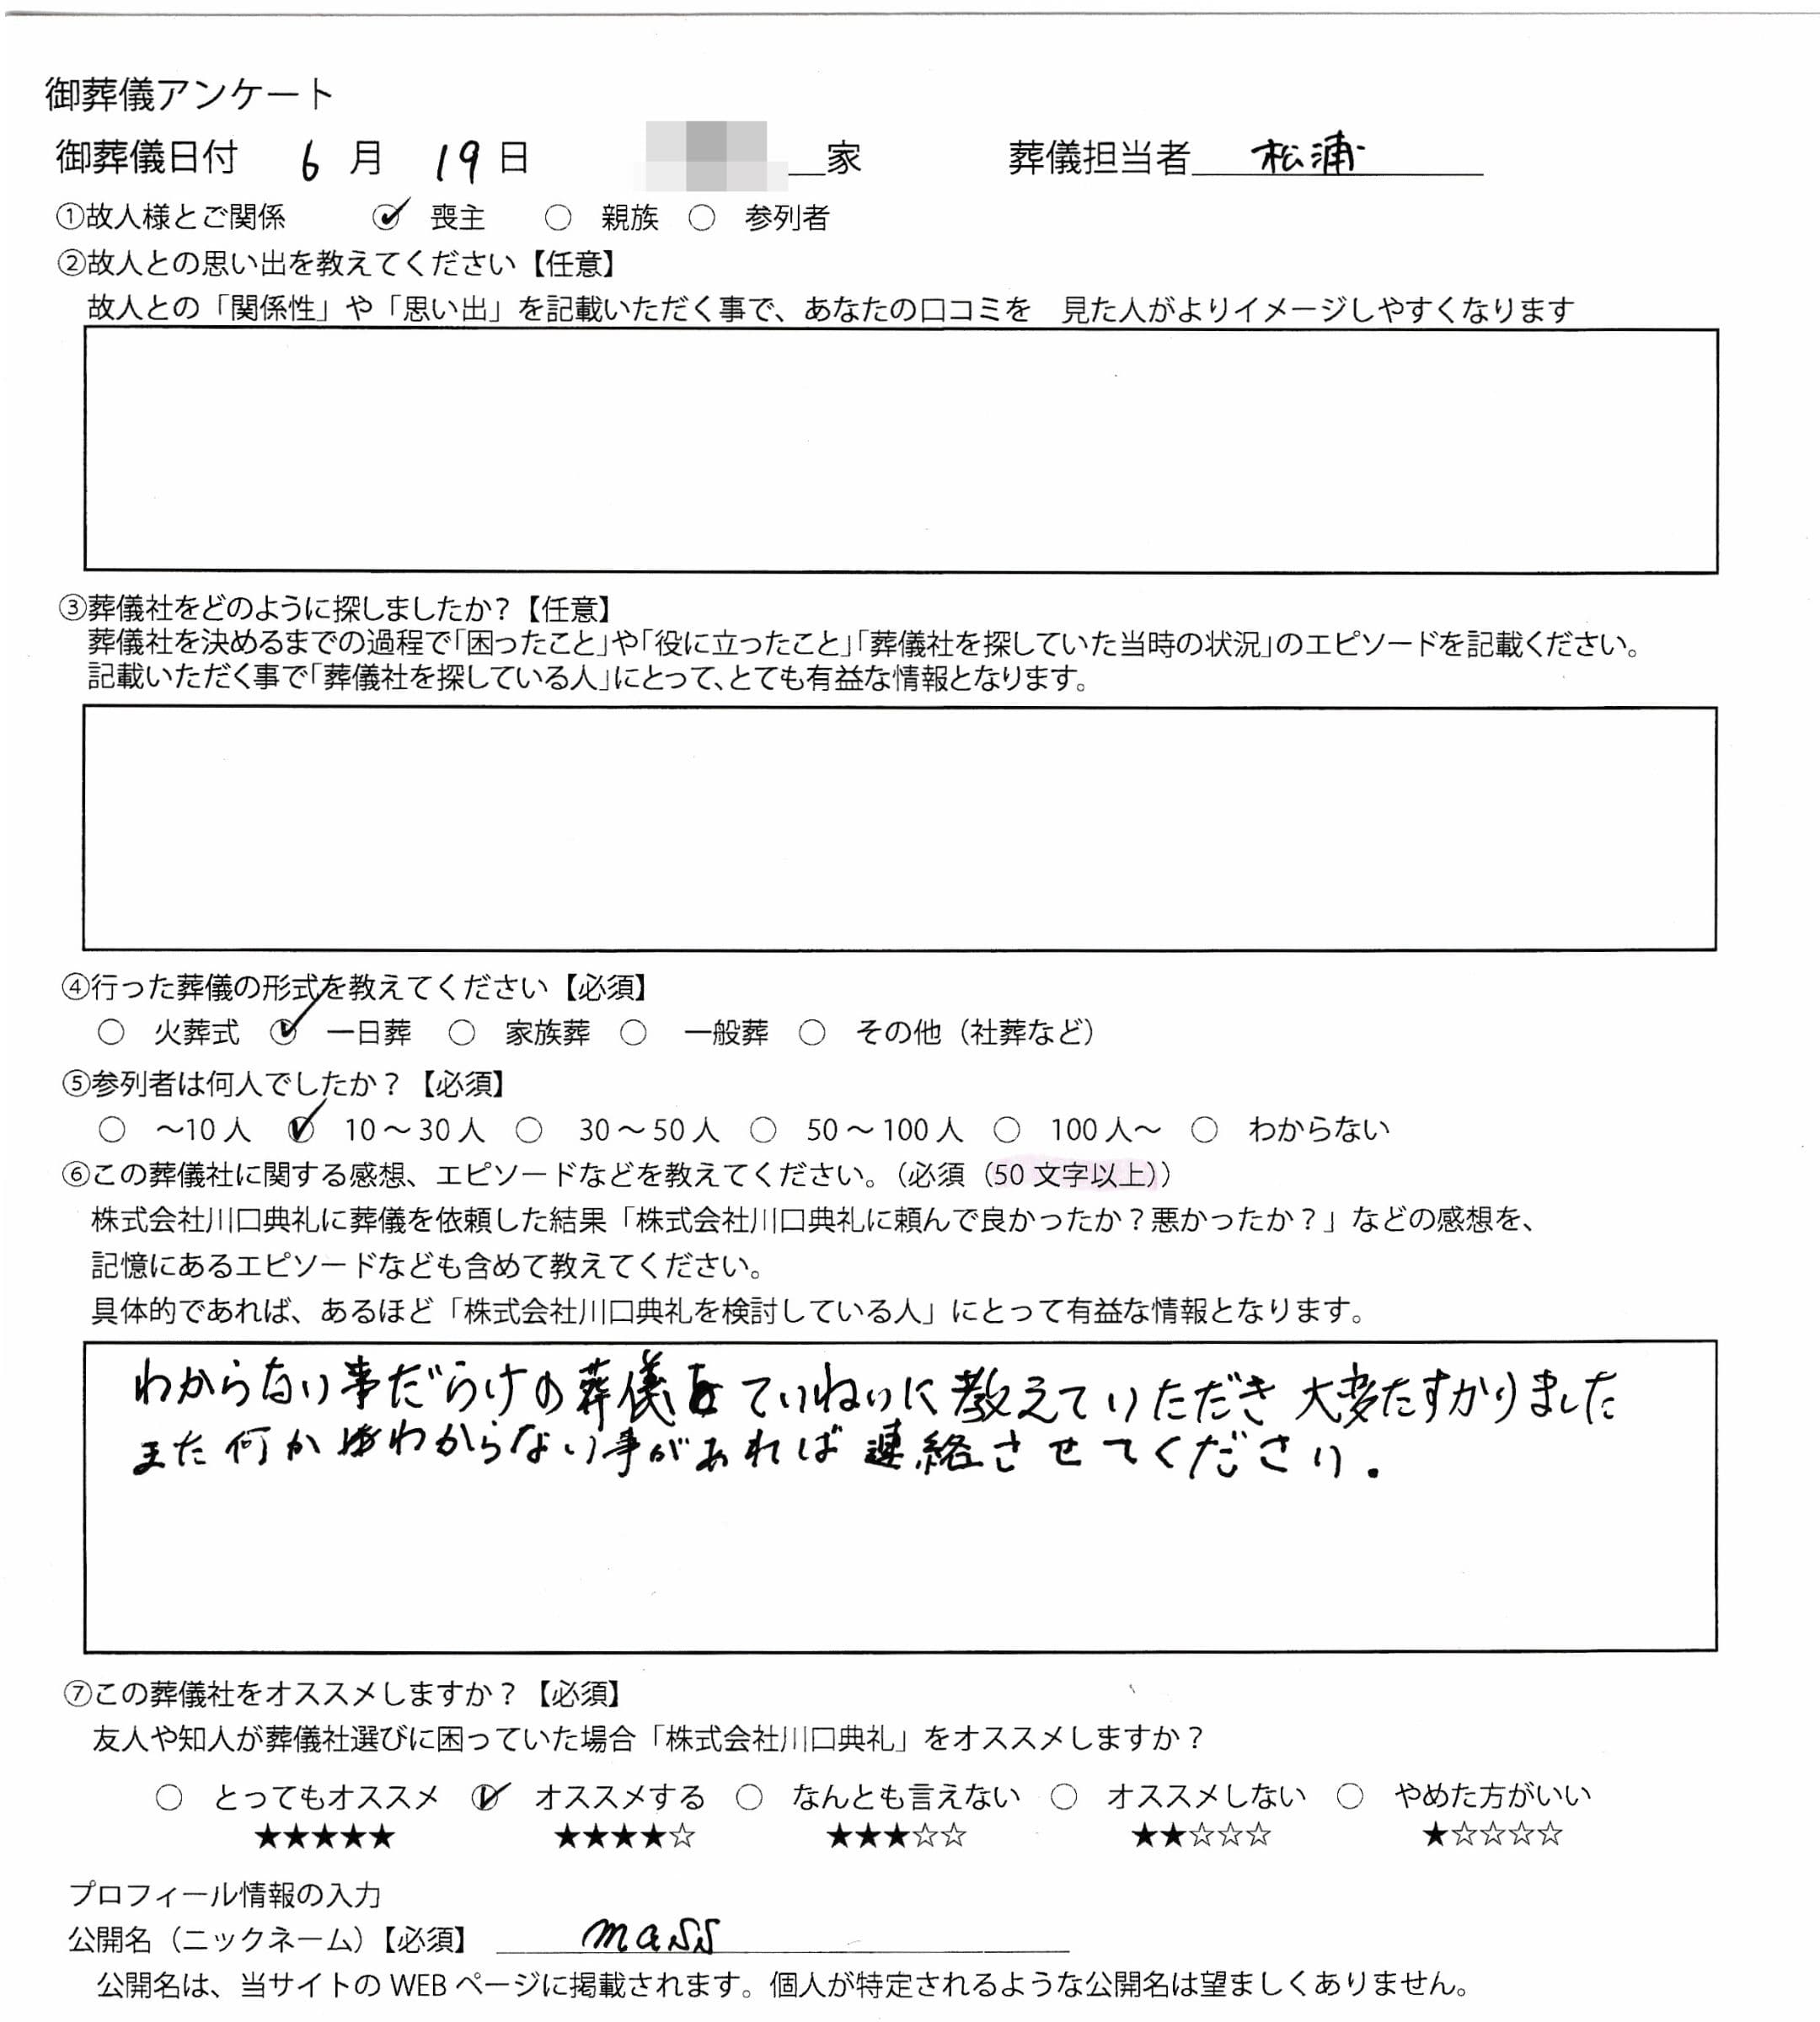 御葬儀アンケート
御葬儀日付 6 月 19 日 家 葬儀担当者 松浦
①故人様とご関係 ○ 喪主 ○ 親族 ○ 参列者
②故人との思い出を教えてください【任意】
故人との「関係性」や「思い出」を記載いただく事で、あなたの口コミを 見た人がよりイメージしやすくなります
③葬儀社をどのように探しましたか?【任意】
葬儀社を決めるまでの過程で「困ったこと」や「役に立ったこと」「葬儀社を探していた当時の状況」のエピソードを記載ください。
記載いただく事で「葬儀社を探している人」にとって、とても有益な情報となります。
④行った葬儀の形式を教えてください【必須】
○ 火葬式 ○ 一日葬 ○ 家族葬 ○ 一般葬 ○ その他（社葬など）
⑤参列者は何人でしたか？【必須】
○ ～10人 ○ 10～30人 ○ 30～50人 ○ 50～100人 ○ 100人～ ○ わからない
⑥この葬儀社に関する感想、エピソードなどを教えてください。（必須（50文字以上））
株式会社川口典礼に葬儀を依頼した結果「株式会社川口典礼に頼んで良かったか？悪かったか？」などの感想を、
記憶にあるエピソードなども含めて教えてください。
具体的であれば、あるほど「株式会社川口典礼を検討している人」にとって有益な情報となります。
わからない事だらけの葬儀をていねいに教えていただき大変たすかりました
また何かわからない事があれば連絡させてください.
⑦この葬儀社をオススメしますか？【必須】
友人や知人が葬儀社選びに困っていた場合「株式会社川口典礼」をオススメしますか？
○ とってもオススメ ○ オススメする ○ なんとも言えない ○ オススメしない ○ やめた方がいい
★★★★★ ★★★★☆ ★★★☆☆ ★★☆☆☆ ★☆☆☆☆
プロフィール情報の入力
公開名（ニックネーム）【必須】 mass
公開名は、当サイトのWEBページに掲載されます。個人が特定されるような公開名は望ましくありません。